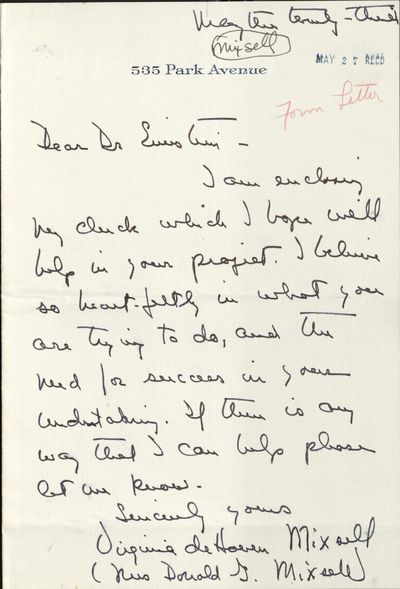 May the twenty-third
Mixsell
535 Park Avenue
MAY 27 REC'D
Form Letter
Dear Dr Einstein -
I am enclosing
my check which I hope will
help in your project. I believe
so heart-feltly in what you
are trying to do, and the
need for success in your
undertaking. If there is any
way that I can help please
let me know.
Sincerely yours
Virginia deHaven Mixsell
(Mrs Donald G. Mixsell)